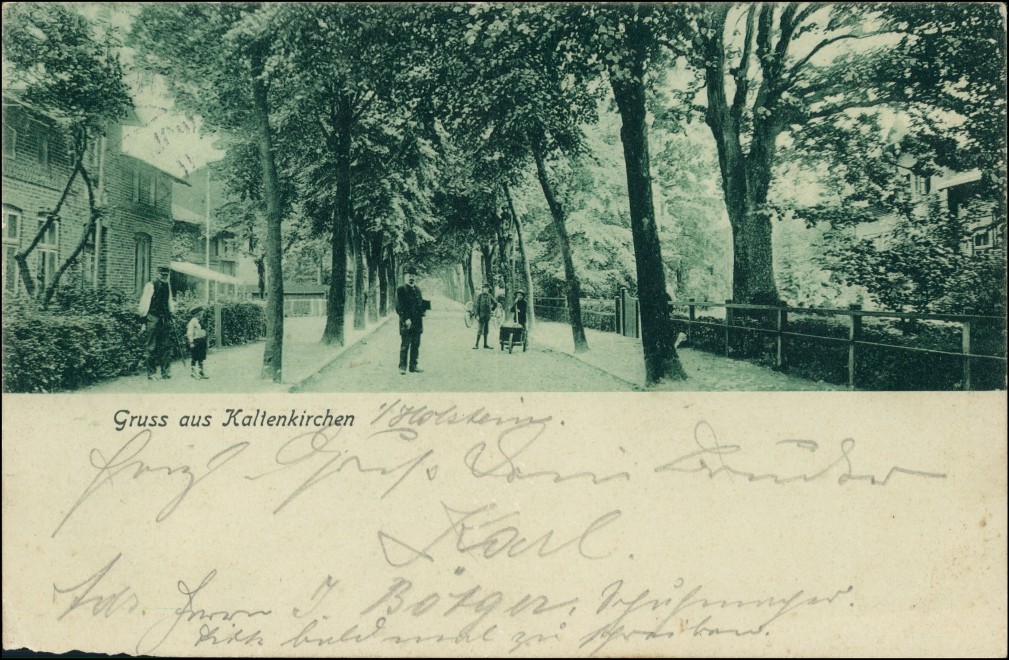 Gruss aus Kaltenkirchen i/Holstein.
Herzl. Gruß Dein Bruder
Karl.
Adr. Herrn J. Bötger, Schuhmacher.
bald mal zu schreiben.